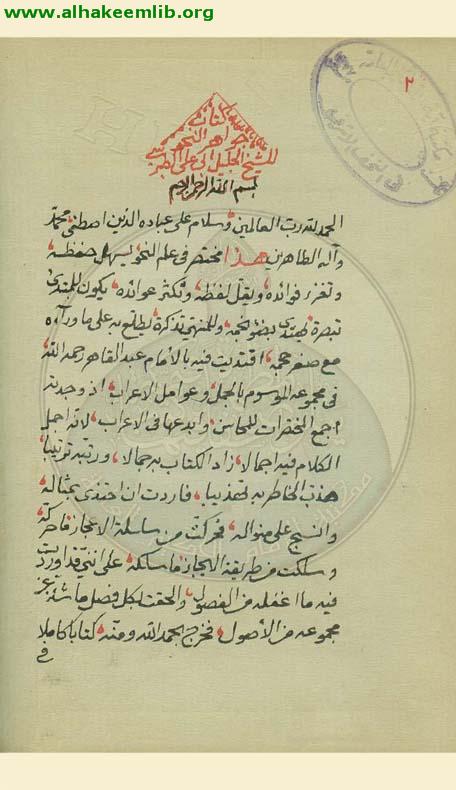 www.alhakeemlib.org
٢
كتاب
جواهر النحو
للشيخ الجليل ابى على الطبرسي
بسم الله الرحمن الرحيم
الحمد لله رب العالمين وسلام على عباده الذين اصطفى محمد
وآله الطاهرين هذا مختصر فى علم النحو يسهل حفظه
وتغزر فوائده ويقل لفظه وتكثر عوائده يكون للمبتدئ
تبصرة يهتدى بضوء نجمه وللمنتهى تذكرة يطلع به على ما ورآءه
مع صغر حجمه اقتديت فيه بالأمام عبد القاهر رحمه الله
فى مجموعه الموسوم بالجمل وعوامل الاعراب اذ وجدته
اجمع المختصرات للمحاسن وابدعها فى الاعراب لانه اجمل
الكلام فيه اجمالا زاد الكتاب به جمالا ورتبه ترتيبا
هذب الخاطر به تهذيبا فاردت ان احتذى بمثاله
وانسج على منواله فحركت من سلسلة الاعجاز ما حركه
وسلكت من طريقة الايجاز ما سلكه على انى قد اوردت
فيه ما اغفله من الفصول والحقت لكل فصل ما شذ عن
مجموعه من الأصول فخرج بحمد الله ومنه كتابا كاملا
فى